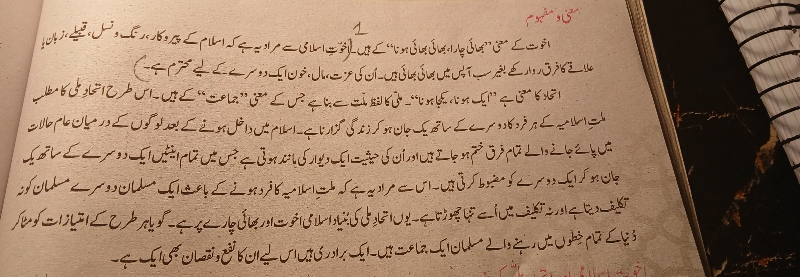 معنی و مفہوم
1
اخوت کے معنی ”بھائی چارا، بھائی بھائی ہونا“ کے ہیں۔ اخوّتِ اسلامی سے مراد یہ ہے کہ اسلام کے پیروکار، رنگ و نسل، قبیلے، زبان یا
علاقے کا فرق روا رکھے بغیر سب آپس میں بھائی بھائی ہیں۔ اُن کی عزت، مال، خون ایک دوسرے کے لیے محترم ہے۔
اتحاد کا معنی ہے ”ایک ہونا، یکجا ہونا“۔ ملّی کا لفظ ملّت سے بنا ہے جس کے معنی ”جماعت“ کے ہیں۔ اس طرح اتحادِ ملّی کا مطلب
ملّتِ اسلامیہ کے ہر فرد کا دوسرے کے ساتھ یک جان ہو کر زندگی گزارنا ہے۔ اسلام میں داخل ہونے کے بعد لوگوں کے درمیان عام حالات
میں پائے جانے والے تمام فرق ختم ہو جاتے ہیں اور اُن کی حیثیت ایک دیوار کی مانند ہوتی ہے جس میں تمام اینٹیں ایک دوسرے کے ساتھ یک
جان ہو کر ایک دوسرے کو مضبوط کرتی ہیں۔ اس سے مراد یہ ہے کہ ملّتِ اسلامیہ کا فرد ہونے کے باعث ایک مسلمان دوسرے مسلمان کو نہ
تکلیف دیتا ہے اور نہ تکلیف میں اُسے تنہا چھوڑتا ہے۔ یوں اتحادِ ملّی کی بُنیاد اسلامی اخوت اور بھائی چارے پر ہے۔ گویا ہر طرح کے امتیازات کو مٹا کر
دُنیا کے تمام خطوں میں رہنے والے مسلمان ایک جماعت ہیں۔ ایک برادری ہیں اس لیے ان کا نفع و نقصان بھی ایک ہے۔